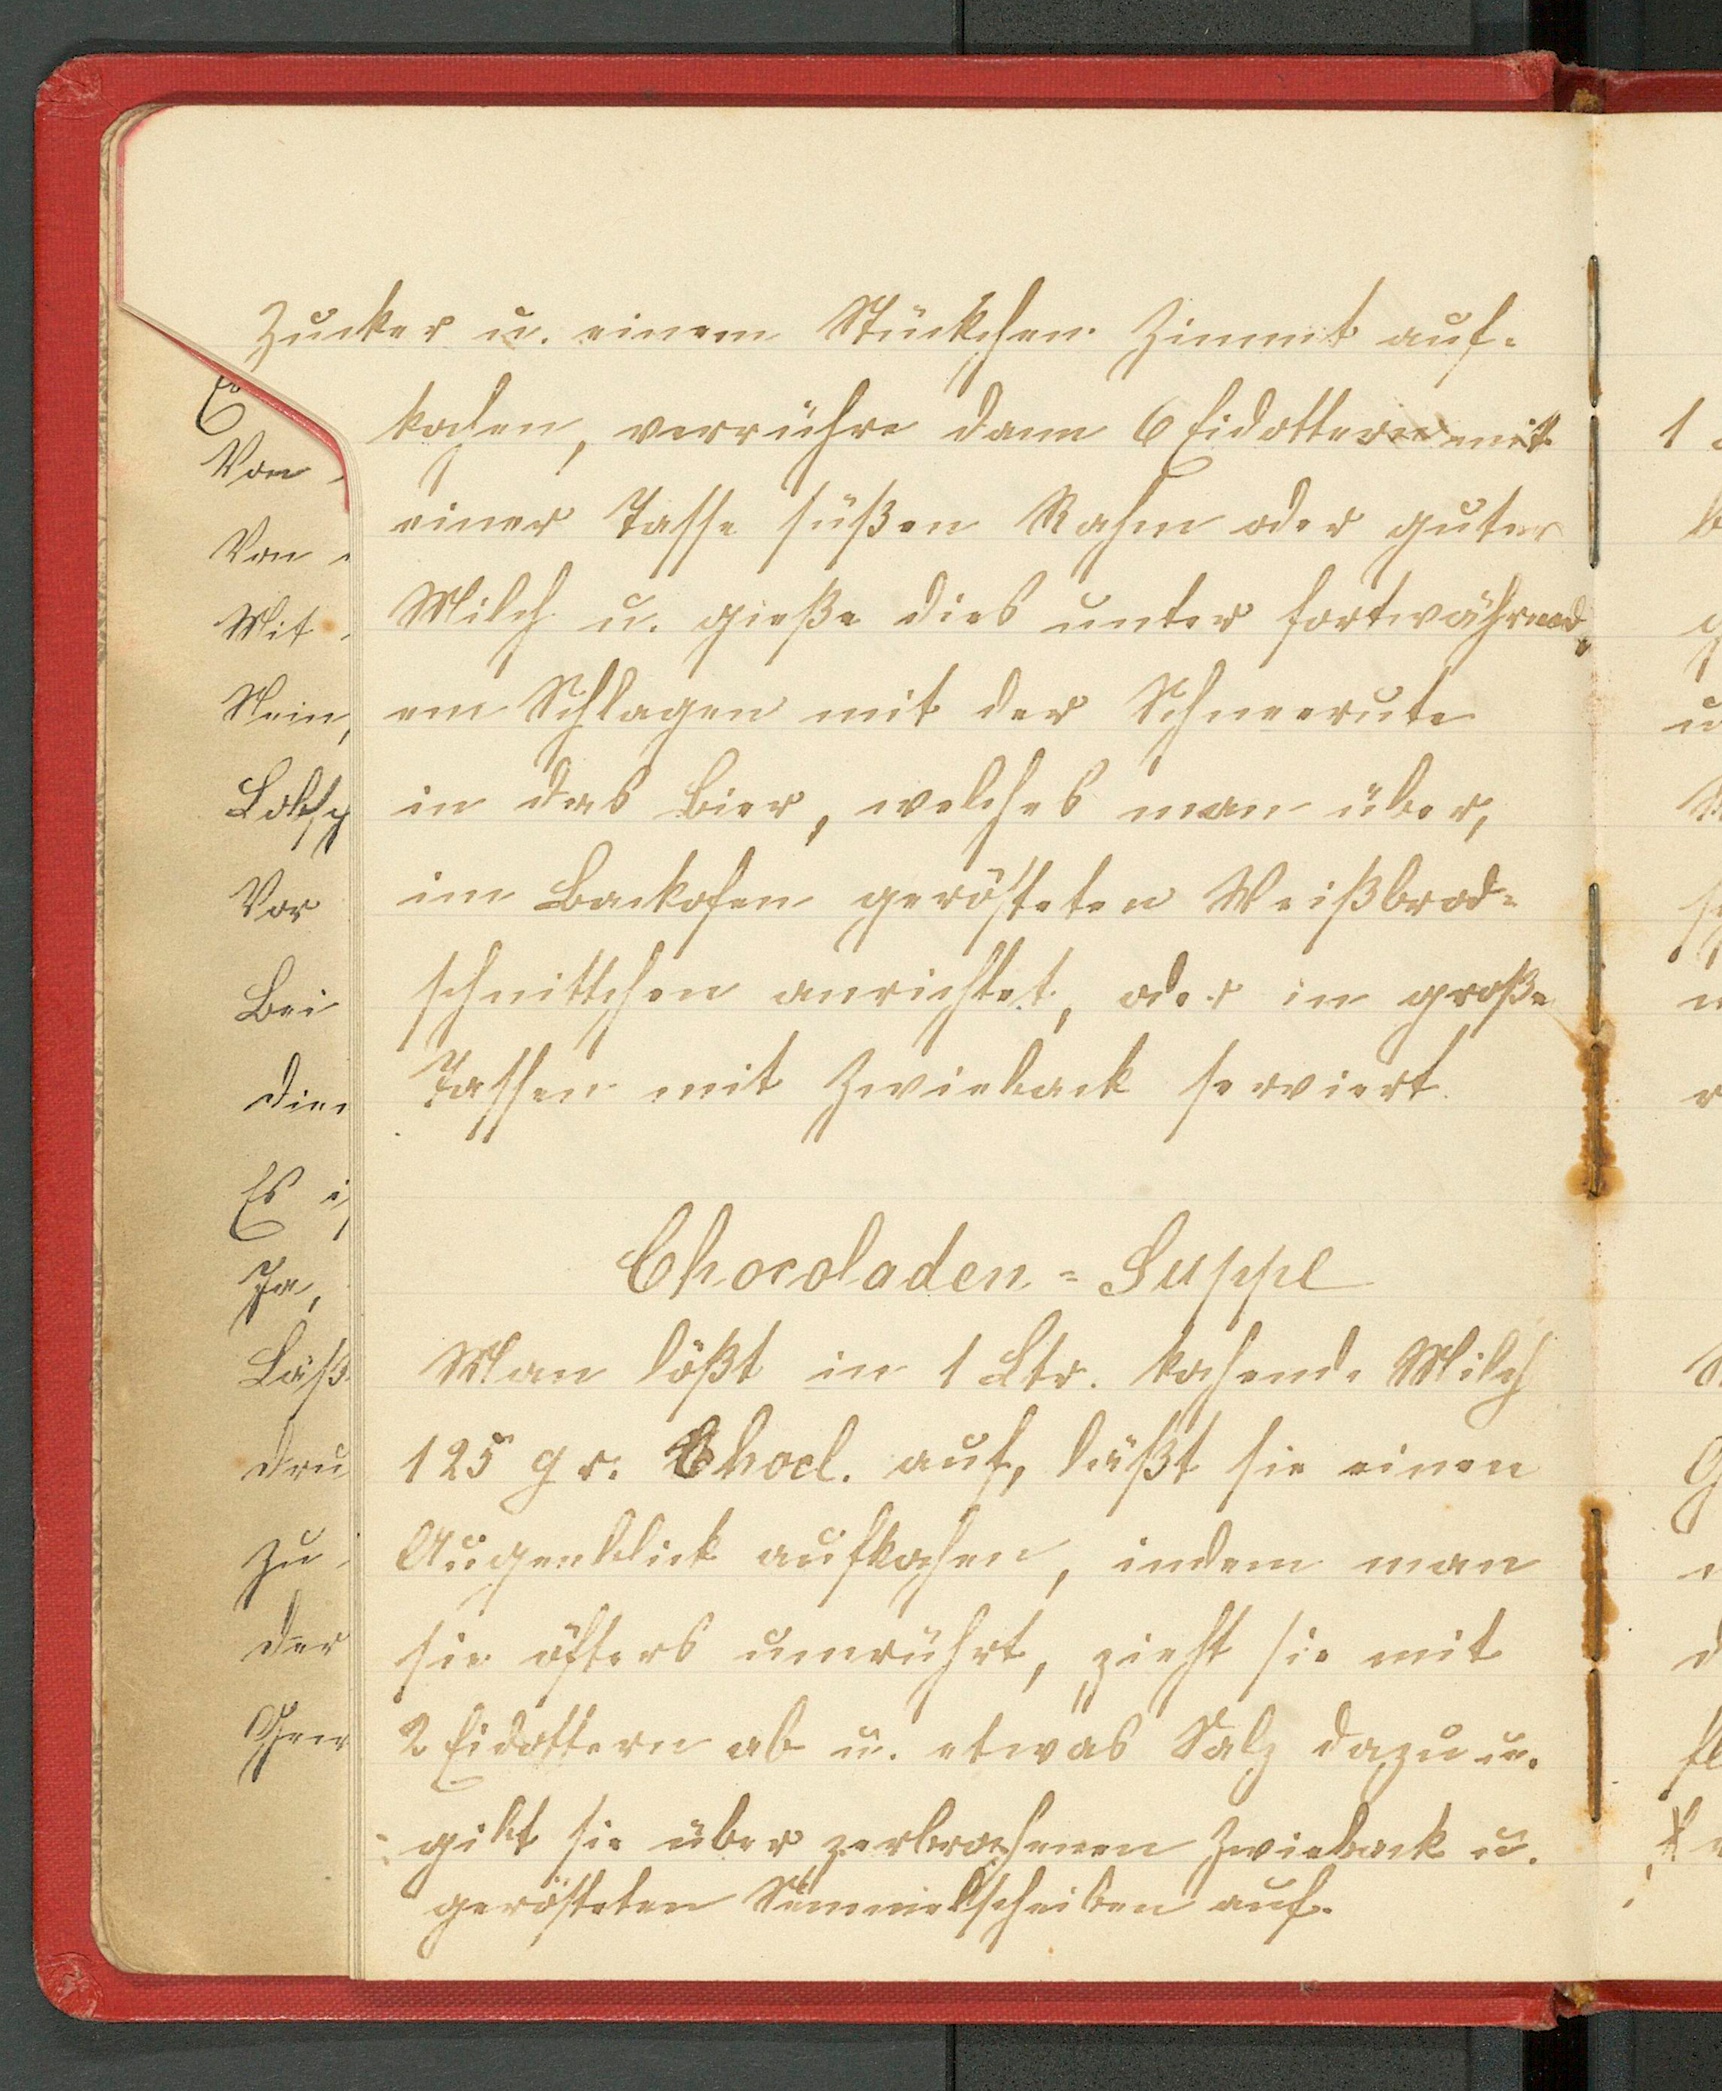 Zucker u. einem Stückchen Zimmt auf-
kochen, verrühre dann 6 Eidottern mit
einer Tasse süßen Rahm oder guter
Milch u. gieße dies unter fortwährend-
em Schlagen mit der Schneerute
in das Bier, welches man über,
im Backofen gerösteten Weißbrod-
schnittchen anrichtet, oder in große
Tassen mit Zwieback serviert.
Chocoladen-Suppe
Man lößt in 1 Ltr. kochende Milch
125 gr. Chocl. auf, läßt sie einen
Augenblick aufkochen, indem man
sie öfters umrührt, zieht sie mit
2 Eidottern ab u. etwas Salz dazu u.
gibt sie über zerbrochenen Zwieback u.
gerösteten Semmelscheiben auf.
Von
Von
Mit
Nein,
Vor
Bei
Es
Ja,
Zu
der